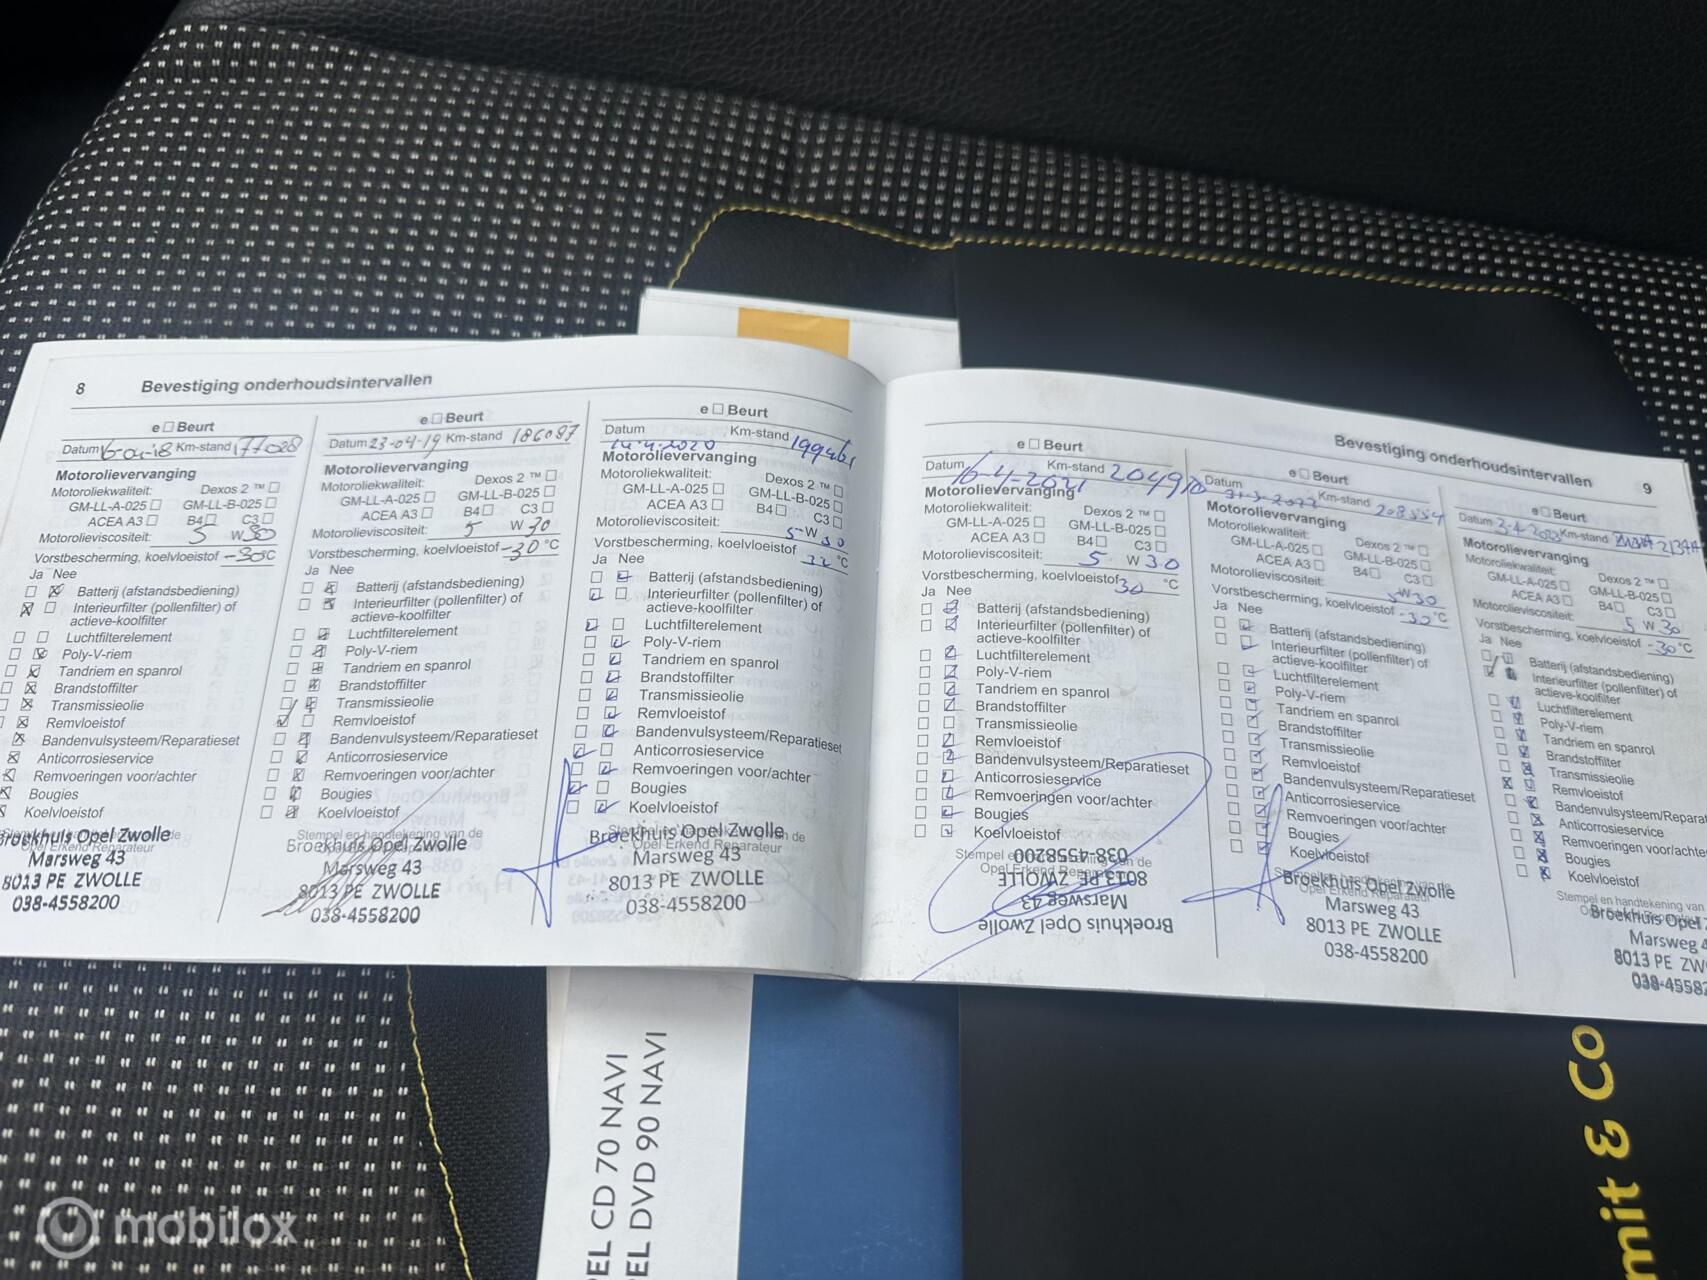 8 Bevestiging onderhoudsintervallen
e □ Beurt
Datum Km-stand 177028
Motorolievervanging
Motoroliekwaliteit: Dexos 2 ™ □
GM-LL-A-025 □ GM-LL-B-025 □
ACEA A3 □ B4 □ C3 □
Motorolieviscositeit: 5 W 30
Vorstbescherming, koelvloeistof -30 °C
Ja Nee
Batterij (afstandsbediening)
Interieurfilter (pollenfilter) of
actieve-koolfilter
Luchtfilterelement
Poly-V-riem
Tandriem en spanrol
Brandstoffilter
Transmissieolie
Remvloeistof
Bandenvulsysteem/Reparatieset
Anticorrosieservice
Remvoeringen voor/achter
Bougies
Koelvloeistof
Broekhuis Opel Zwolle
Marsweg 43
8013 PE ZWOLLE
038-4558200
e □ Beurt
Datum 23-04-19 Km-stand 186087
Motorolievervanging
Motoroliekwaliteit: Dexos 2 ™ □
GM-LL-A-025 □ GM-LL-B-025 □
ACEA A3 □ B4 □ C3 □
Motorolieviscositeit: 5 W 30
Vorstbescherming, koelvloeistof -30 °C
Ja Nee
Batterij (afstandsbediening)
Interieurfilter (pollenfilter) of
actieve-koolfilter
Luchtfilterelement
Poly-V-riem
Tandriem en spanrol
Brandstoffilter
Transmissieolie
Remvloeistof
Bandenvulsysteem/Reparatieset
Anticorrosieservice
Remvoeringen voor/achter
Bougies
Koelvloeistof
Stempel en handtekening van de
Opel Erkend Reparateur
Broekhuis Opel Zwolle
Marsweg 43
8013 PE ZWOLLE
038-4558200
e □ Beurt
Datum 14-4-2020 Km-stand
Motorolievervanging
Motoroliekwaliteit: Dexos 2 ™ □
GM-LL-A-025 □ GM-LL-B-025 □
ACEA A3 □ B4 □ C3 □
Motorolieviscositeit: 5-W 30
Vorstbescherming, koelvloeistof °C
Ja Nee
Batterij (afstandsbediening)
Interieurfilter (pollenfilter) of
actieve-koolfilter
Luchtfilterelement
Poly-V-riem
Tandriem en spanrol
Brandstoffilter
Transmissieolie
Remvloeistof
Bandenvulsysteem/Reparatieset
Anticorrosieservice
Remvoeringen voor/achter
Bougies
Koelvloeistof
Stempel en handtekening van de
Opel Erkend Reparateur
Broekhuis Opel Zwolle
Marsweg 43
8013 PE ZWOLLE
038-4558200
Bevestiging onderhoudsintervallen 9
e □ Beurt
Datum 16-4-2021 Km-stand
Motorolievervanging
Motoroliekwaliteit: Dexos 2 ™ □
GM-LL-A-025 □ GM-LL-B-025 □
ACEA A3 □ B4 □ C3 □
Motorolieviscositeit: 5 W 30
Vorstbescherming, koelvloeistof 30 °C
Ja Nee
Batterij (afstandsbediening)
Interieurfilter (pollenfilter) of
actieve-koolfilter
Luchtfilterelement
Poly-V-riem
Tandriem en spanrol
Brandstoffilter
Transmissieolie
Remvloeistof
Bandenvulsysteem/Reparatieset
Anticorrosieservice
Remvoeringen voor/achter
Bougies
Koelvloeistof
Stempel en handtekening van de
Opel Erkend Reparateur
Broekhuis Opel Zwolle
Marsweg 43
8013 PE ZWOLLE
038-4558200
e □ Beurt
Datum Km-stand 208554
Motorolievervanging
Motoroliekwaliteit: Dexos 2 ™ □
GM-LL-A-025 □ GM-LL-B-025 □
ACEA A3 □ B4 □ C3 □
Motorolieviscositeit: 5 W 30
Vorstbescherming, koelvloeistof -30 °C
Ja Nee
Batterij (afstandsbediening)
Interieurfilter (pollenfilter) of
actieve-koolfilter
Luchtfilterelement
Poly-V-riem
Tandriem en spanrol
Brandstoffilter
Transmissieolie
Remvloeistof
Bandenvulsysteem/Reparatieset
Anticorrosieservice
Remvoeringen voor/achter
Bougies
Koelvloeistof
Stempel en handtekening van de
Opel Erkend Reparateur
Broekhuis Opel Zwolle
Marsweg 43
8013 PE ZWOLLE
038-4558200
e □ Beurt
Datum Km-stand
Motorolievervanging
Motoroliekwaliteit: Dexos 2 ™ □
GM-LL-A-025 □ GM-LL-B-025 □
ACEA A3 □ B4 □ C3 □
Motorolieviscositeit: 5 W 30
Vorstbescherming, koelvloeistof -30 °C
Ja Nee
Batterij (afstandsbediening)
Interieurfilter (pollenfilter) of
actieve-koolfilter
Luchtfilterelement
Poly-V-riem
Tandriem en spanrol
Brandstoffilter
Transmissieolie
Remvloeistof
Bandenvulsysteem/Reparat
Anticorrosieservice
Remvoeringen voor/achter
Bougies
Koelvloeistof
Stempel en handtekening van
Broekhuis Opel
Marsweg 4
8013 PE ZW
038-4558
PEL CD 70 NAVI
EL DVD 90 NAVI
mit & Co
mobilox